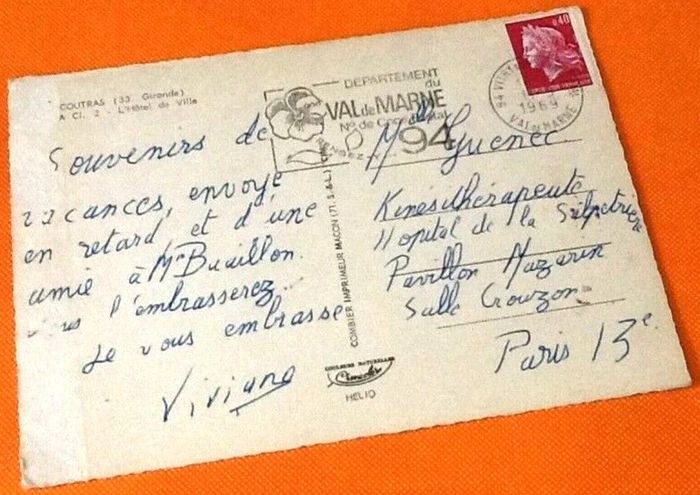 COUTRAS (33 Gironde)
A Cl. 2 - L'Hôtel de Ville
Souvenirs de
vacances, envoyé
en retard et d'une
amie à Mme Buaillon.
vous l'embrasserez.
Je vous embrasse
Viviane
COMBIER IMPRIMEUR MACON (71, S.-&-L.)
COULEURS NATURELLES
Cimcolor
HELIO
DEPARTEMENT
du
VAL de MARNE
No de Code Postal
94
0,40
REPUBLIQUE FRANÇAISE
94 VITRY
1969
VAL DE MARNE
Mlle Guenec
Kinésithérapeute
Hopital de la Salpetriere
Pavillon Mazarin
Salle Crouzon
Paris 13e